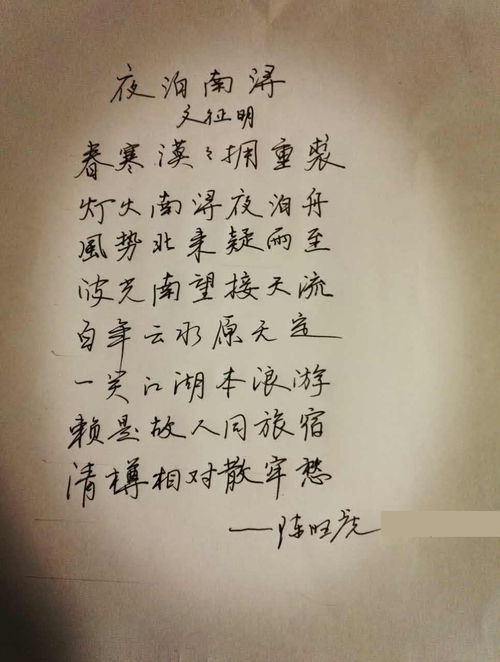 夜泊南浔
文征明
春寒漠々拥重裘
灯火南浔夜泊舟
風势北来疑雨至
波光南望接天流
百年云水原无定
一笑江湖本浪游
赖是故人同旅宿
清樽相对散牢愁
——陈旺虎